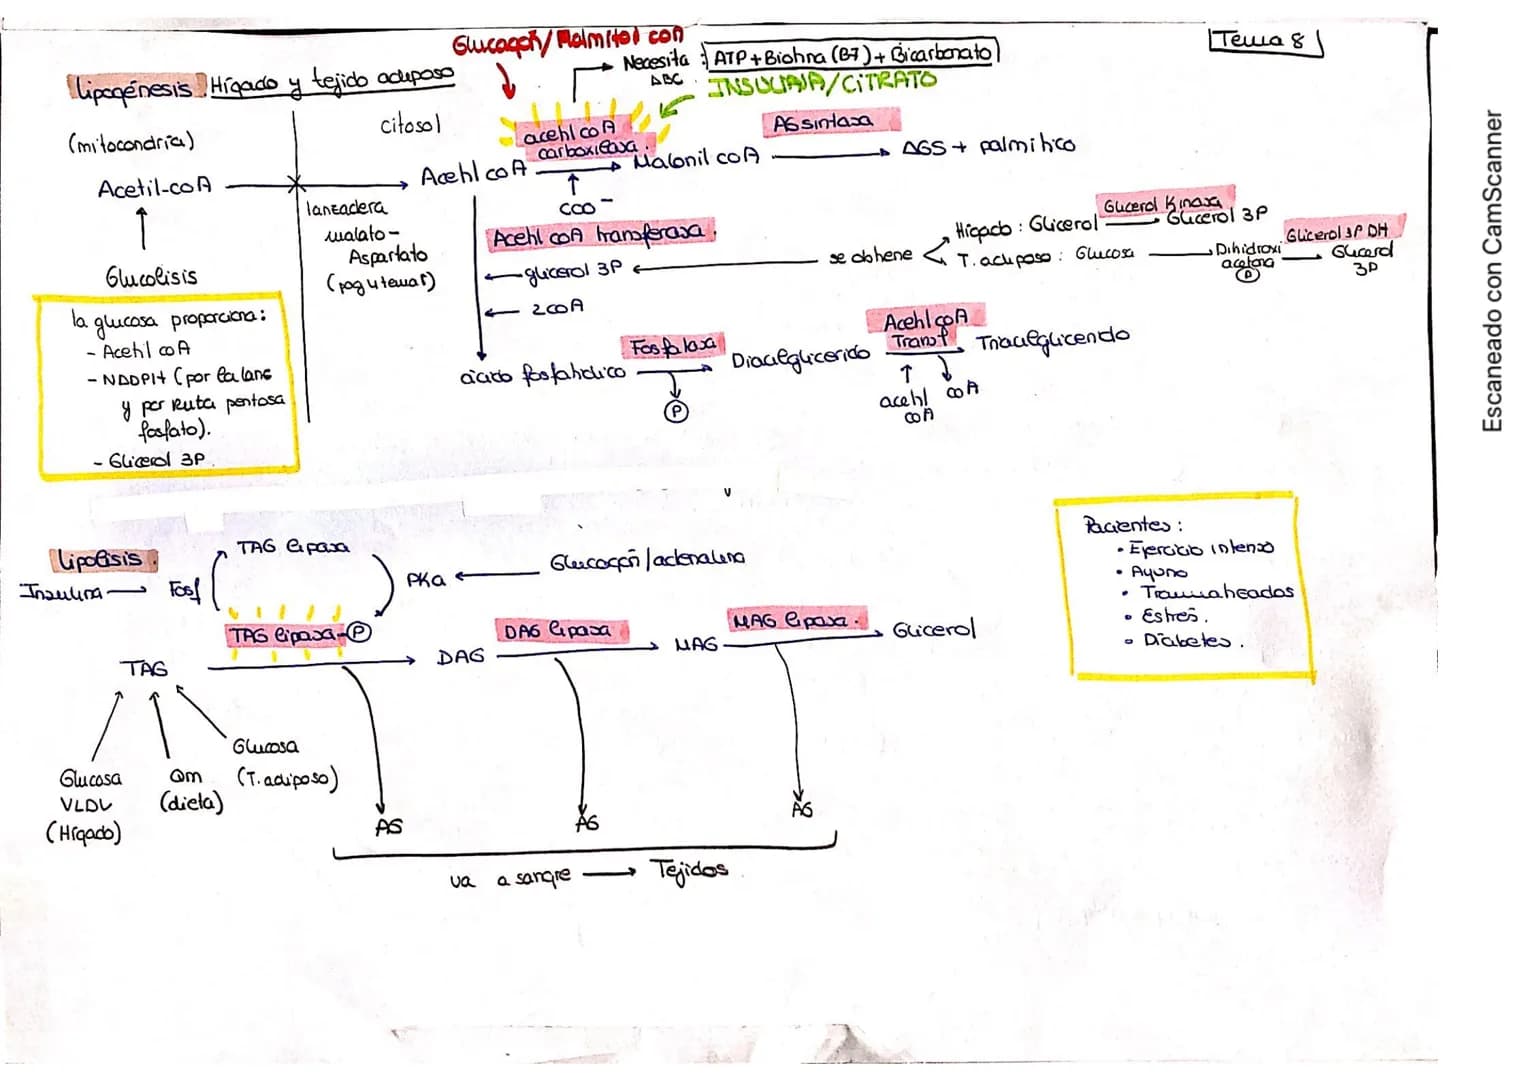 Tema 8
Lipogénesis. Hígado y tejido adiposo
Glucagón/Palmitol coA
Necesita : ATP + Biotina (B7) + Bicarbonato
ABC
INSULINA/CITRATO
(mitocondria)
citosol
Acetil-coA
lanzadera
malato-
Aspartato
(pag y tema 5)
Acetil coA
acetil coA
carboxilasa.
COO⁻
Malonil coA
AG sintasa
AGS + palmítico
Glucolisis
la glucosa proporciona:
- Acetil coA
- NADPH+ (por la lanz
y por Ruta pentosa
fosfato).
- Glicerol 3P.
Acetil coA transferasa.
glicerol 3P
2 coA
se obtiene
Hígado : Glicerol
Glicerol Kinasa
Glicerol 3P
T. adiposo : Glucosa
Dihidroxi
acetona
P
Glicerol 3P DH
Glicerol
3P
ácido fosfatídico
Fosfatasa
P
Diacilglicerido
Acetil coA
Transf
acetil
coA
coA
Triacilglicerido
Lipolisis.
Insulina
Fosf
TAG lipasa
PKa
Glucagón/adrenalina
TAG lipasa-P
TAG
DAG
DAG lipasa
MAG
MAG lipasa.
Glicerol
Glucosa
VLDL
(Hígado)
Qm
(dieta)
Glucosa
(T. adiposo)
AG
AG
AG
va a sangre
Tejidos.
Pacientes :
• Ejercicio intenso
• Ayuno
• Traumaticados
• Estrés.
• Diabetes.
Escaneado con CamScanner